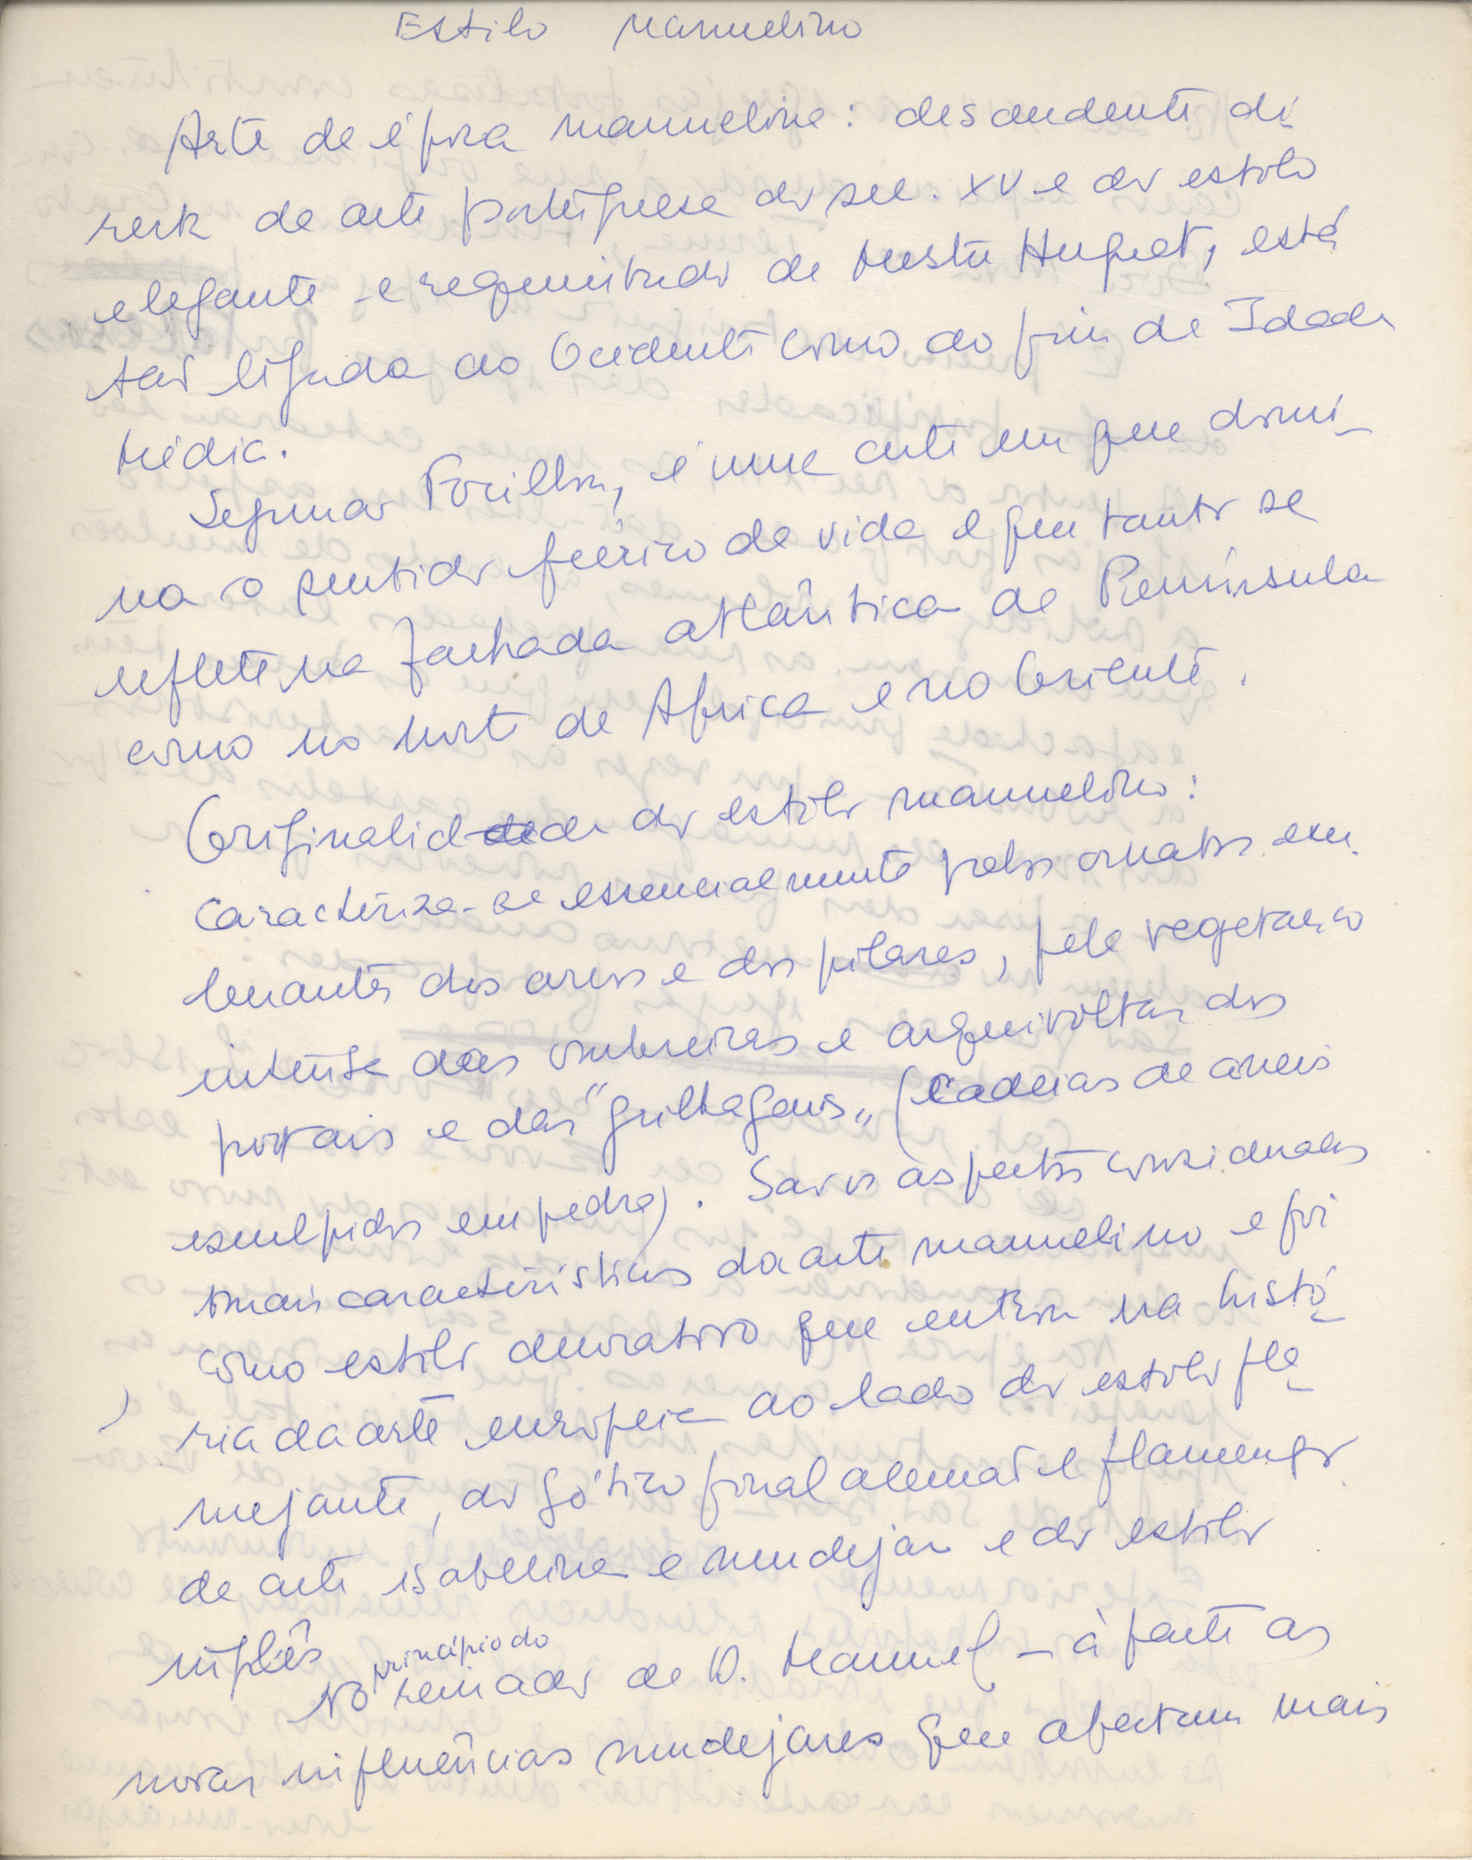 Estilo Manuelino
Arte de época manuelina: descendente di-
recta da arte portuguesa do sec. XV e do estilo
elegante e requintado de Mestre Huguet, está
tão ligada ao Ocidente como ao fim da Idade
Média.
Segundo Focillon, é uma arte em que domi-
na o sentido feérico da vida e que tanto se
reflete na fachada atlântica da Península
como no norte de Africa e no Oriente.
Originalidade do estilo manuelino:
Caracteriza-se essencialmente pelos ornatos exu-
berantes dos arcos e dos pilares, pela vegetação
intensa das ombreiras e arquivoltas dos
portais e das "grilhagens" (cadeias de aneis
esculpidos em pedra). São os aspectos considerados
mais caracteristicos da arte manuelino e foi
como estilo decorativo que entrou na histó-
ria da arte europeia ao lado do estilo fla-
mejante, do gótico final alemão e flamengo
da arte isabelina e mudejar e do estilo
inglês
No principio do reinado de D. Manuel – à parte as
novas influências mudejares que afectam mais